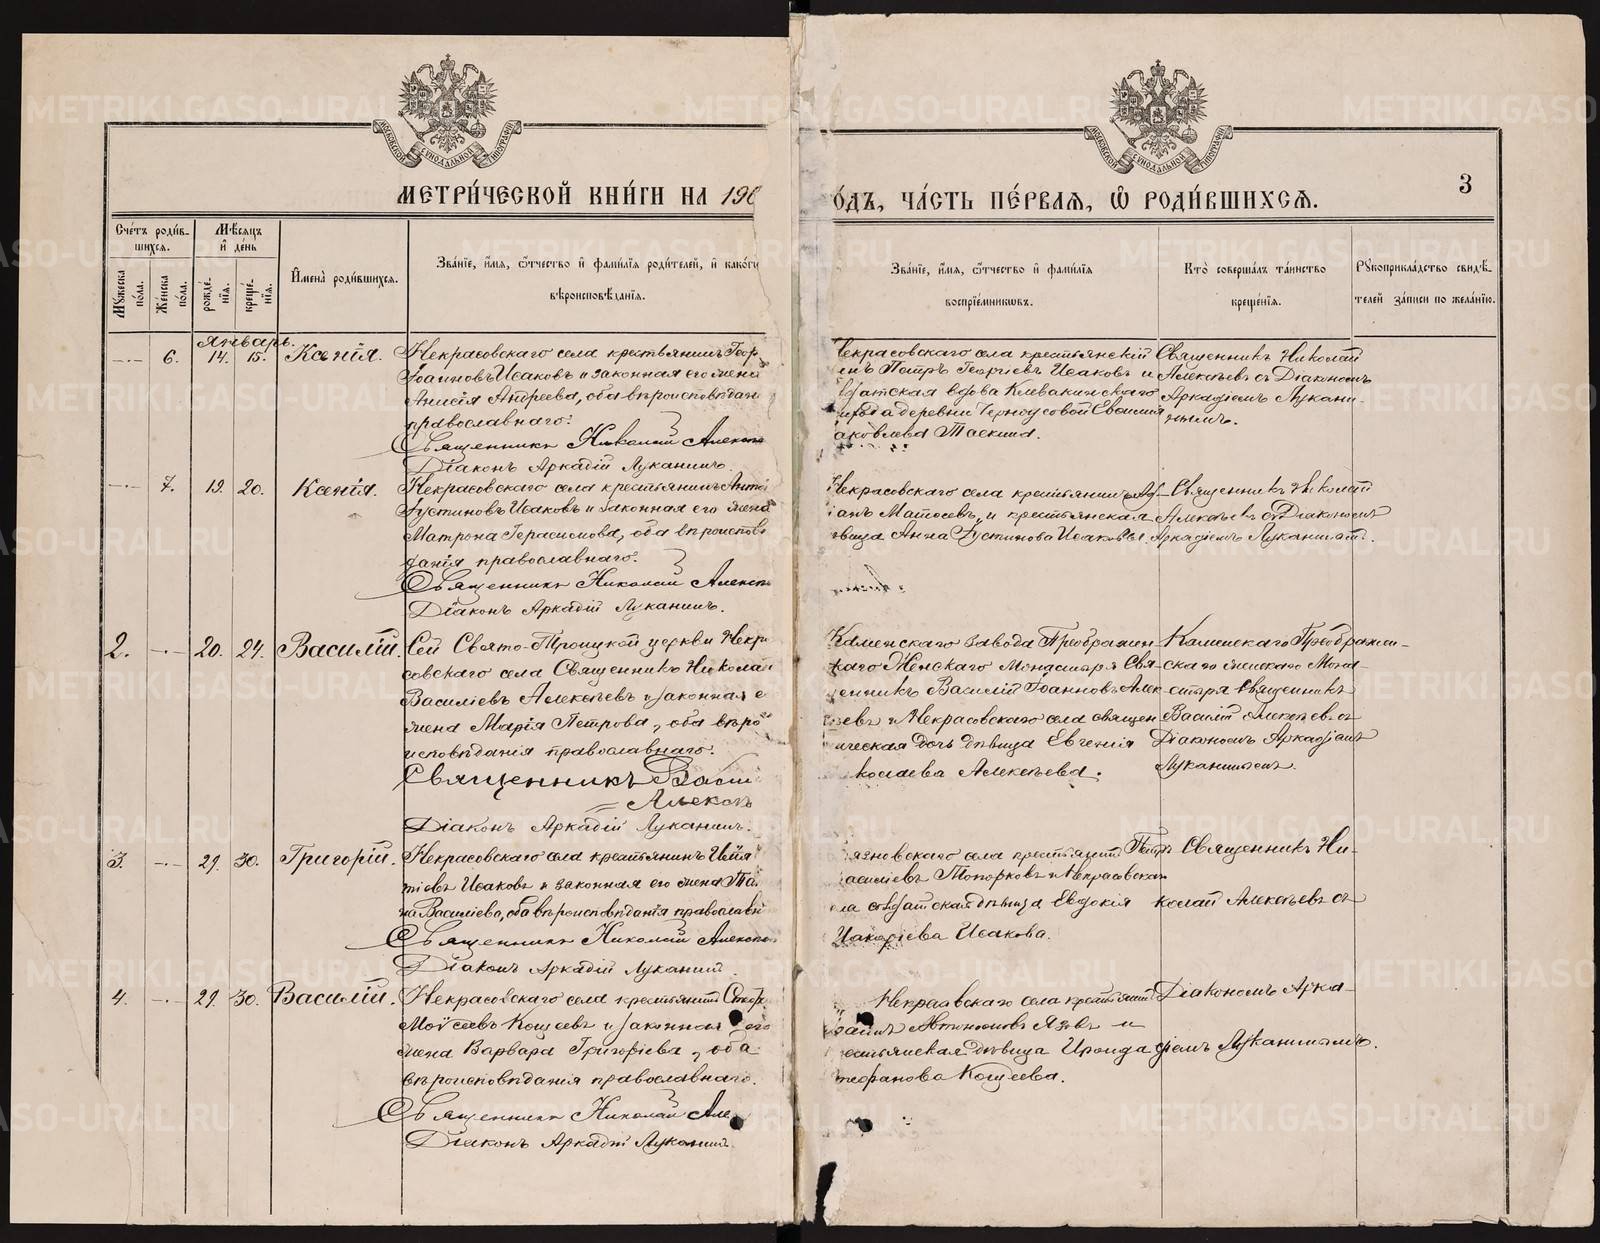 МЕТРИ́ЧЕСКОЙ КНИ́ГИ НА 190
О́ДЪ, ЧА́СТЬ ПЕ́РВАЯ, Ѡ РОДИ́ВШИХСЯ.
3
Сче́тъ роди́в-
шихся.
Мѣ́сяцъ
и де́нь
Мꙋжеска по́ла.
Же́нска по́ла.
рожде́нїя.
креще́нїя.
Имена̀ роди́вшихся.
Зва́нїе, и́мя, ѻ́тчество и фами́лїя роди́телей, и како́гѡ
вѣроисповѣ́данїя.
Зва́нїе, и́мя, ѻ́тчество и фами́лїя
воспрїе́мникѡвъ.
Кто̀ соверша́лъ та́инство
креще́нїя.
Рꙋкоприкла́дство свидѣ́-
телей за́писи по жела́нїю.
Январь.
6. 14. 15. Ксенія.
Некрасовскаго села крестьянинъ Геор
Іоанновъ Исаковъ и законная его жена
Анисія Андреева, оба вѣроисповѣдан
православнаго.
Священникъ Николай Алексѣ
Діаконъ Аркадій Луканинъ.
екрасовскаго села крестьянскій
нъ Петръ Георгіевъ Исаковъ и
датская вдова Клевакинскаго
деревни Черноусовой
аковлева
Священникъ Николай
Алексѣевъ съ Діакономъ
Аркадіемъ Лукани-
нымъ.
7. 19. 20. Ксенія.
Некрасовскаго села крестьянинъ
Іустиновъ Исаковъ и законная его жена
Матрона Герасимова, оба вѣроисповѣ
данія православнаго.
Священникъ Николай Алексѣ
Діаконъ Аркадій Луканинъ.
Некрасовскаго села крестьянинъ
и крестьянская
вица Анна Іустинова Исакова
Священникъ Николай
Алексѣевъ съ Діакономъ
Аркадіемъ
2. 20. 24. Василій.
Сей Свято-Троицкой церкви Некра
совскаго села Священникъ Николай
Василіевъ Алексѣевъ и законная е
жена Марія Петрова, оба вѣро
исповѣданія православнаго.
Священникъ Васил
Алексѣ
Діаконъ Аркадій Луканинъ.
Каменскаго завода Преображен
каго Женскаго Монастыря Свя-
щенникъ Василій Іоанновъ Алек
ѣевъ и Некрасовскаго села священ
ническая дочь дѣвица Евгенія
колаева Алексѣева.
Каменскаго Преображен-
скаго женскаго Мона-
стыря Священникъ
Василій Алексѣевъ съ
Діакономъ Аркадіемъ
Луканинымъ.
3. 29. 30. Григорій.
Некрасовскаго села крестьянинъ
тіевъ Исаковъ и законная его жена
на Василіева, оба вѣроисповѣданія православн
Священникъ Николай Алексѣев
Діаконъ Аркадій Луканинъ.
язновскаго села крестьянинъ Петръ
асиліевъ Топорковъ и Некрасовска
ла солдатская дѣвица Евдокія
Исакова.
Священникъ Ни-
колай Алексѣевъ съ
4. 29. 30. Василій.
Некрасовскаго села крестьянинъ
Моѵсеевъ Кощеевъ и законная его
жена Варвара Григоріева, оба
вѣроисповѣданія православнаго.
Священникъ Николай Але
Діаконъ Аркадій Луканинъ.
Некрасовскаго села крестьянинъ
Автономовъ Язовъ и
естьянская дѣвица Ираида
тефанова Кощеева.
Діакономъ Арка-
діемъ Луканинымъ.